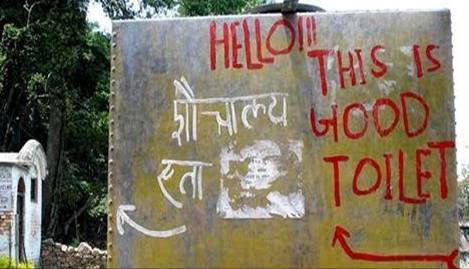 HELLO!!!
THIS IS
GOOD
TOILET
शौचालय
स्ता